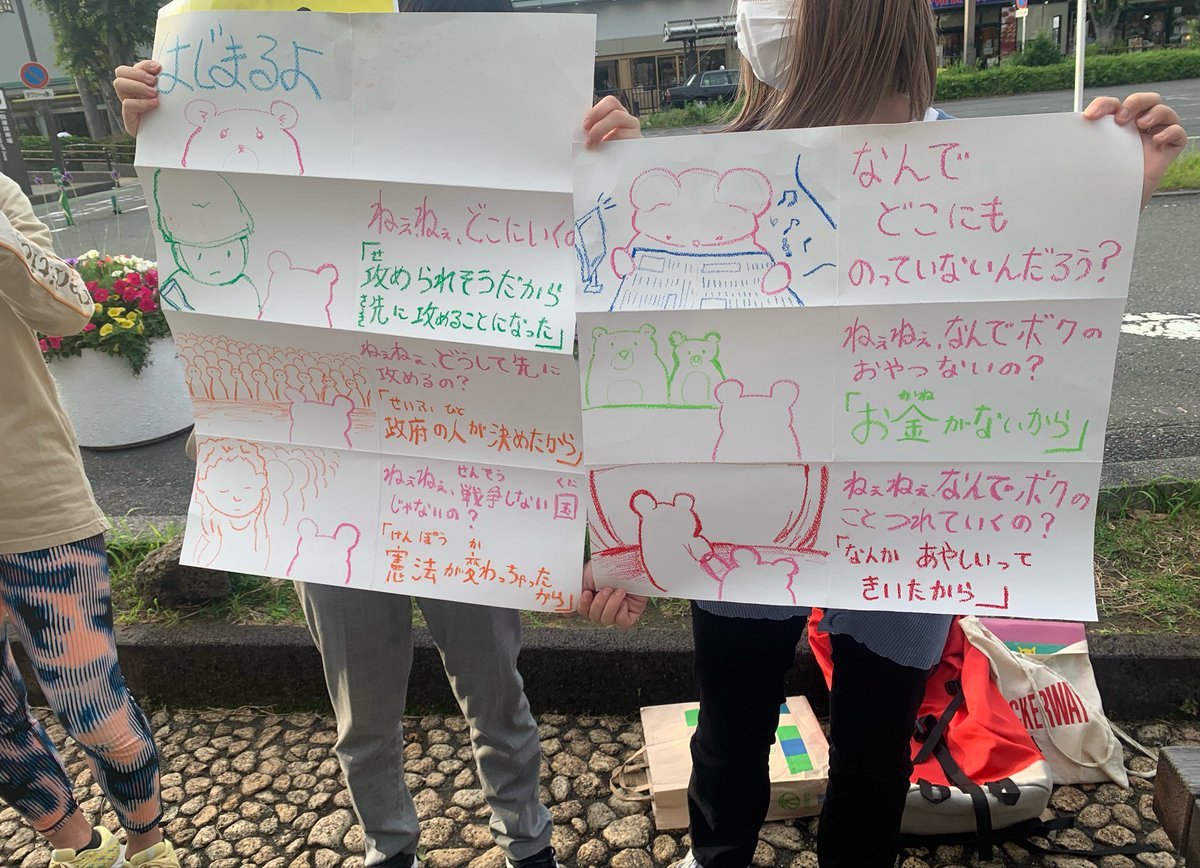 はじまるよ
ねぇねぇ、どこにいくの
「攻められそうだから
せ
先に攻めることになった」
さき
ねぇねぇ、どうして先に
攻めるの?
「せいふ ひと
政府の人が決めたから」
ねぇねぇ、せんそう くに
戦争しない国
じゃないの?
「けんぽう か
憲法が変わっちゃった
から」
なんで
どこにも
のっていないんだろう?
ねぇねぇ、なんでボクの
おやつないの?
かね
「お金がないから」
ねぇねぇ、なんでボクの
ことつれていくの?
「なんか あやしいって
きいたから」
CKERWAY